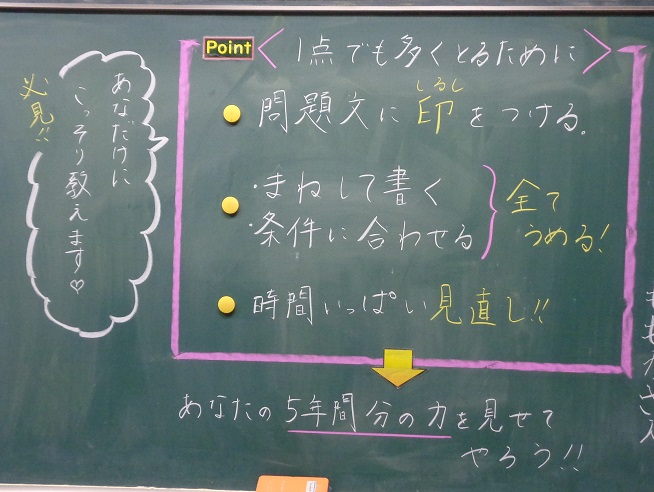 Point
<1点でも多くとるために>
しるし
問題文に印をつける。
・まねして書く
・条件に合わせる
全て
うめる!
時間いっぱい見直し!!
あなたの5年間分の力を見せて
やろう!!
必見!!
あなだけに
こっそり教えます♡